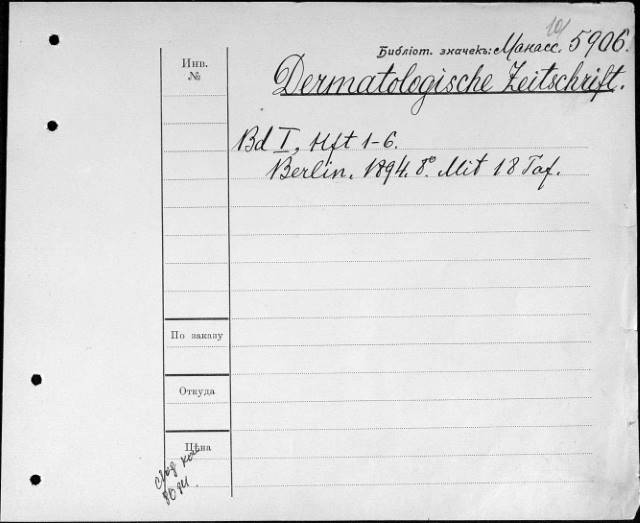 Библіот. значекъ: Манасс. 5906.
Инв.
№
Dermatologische Zeitschrift.
Bd I, Hft 1-6.
Berlin. 1894. 8º. Mit 18 Taf.
По заказу
Откуда
Цѣна